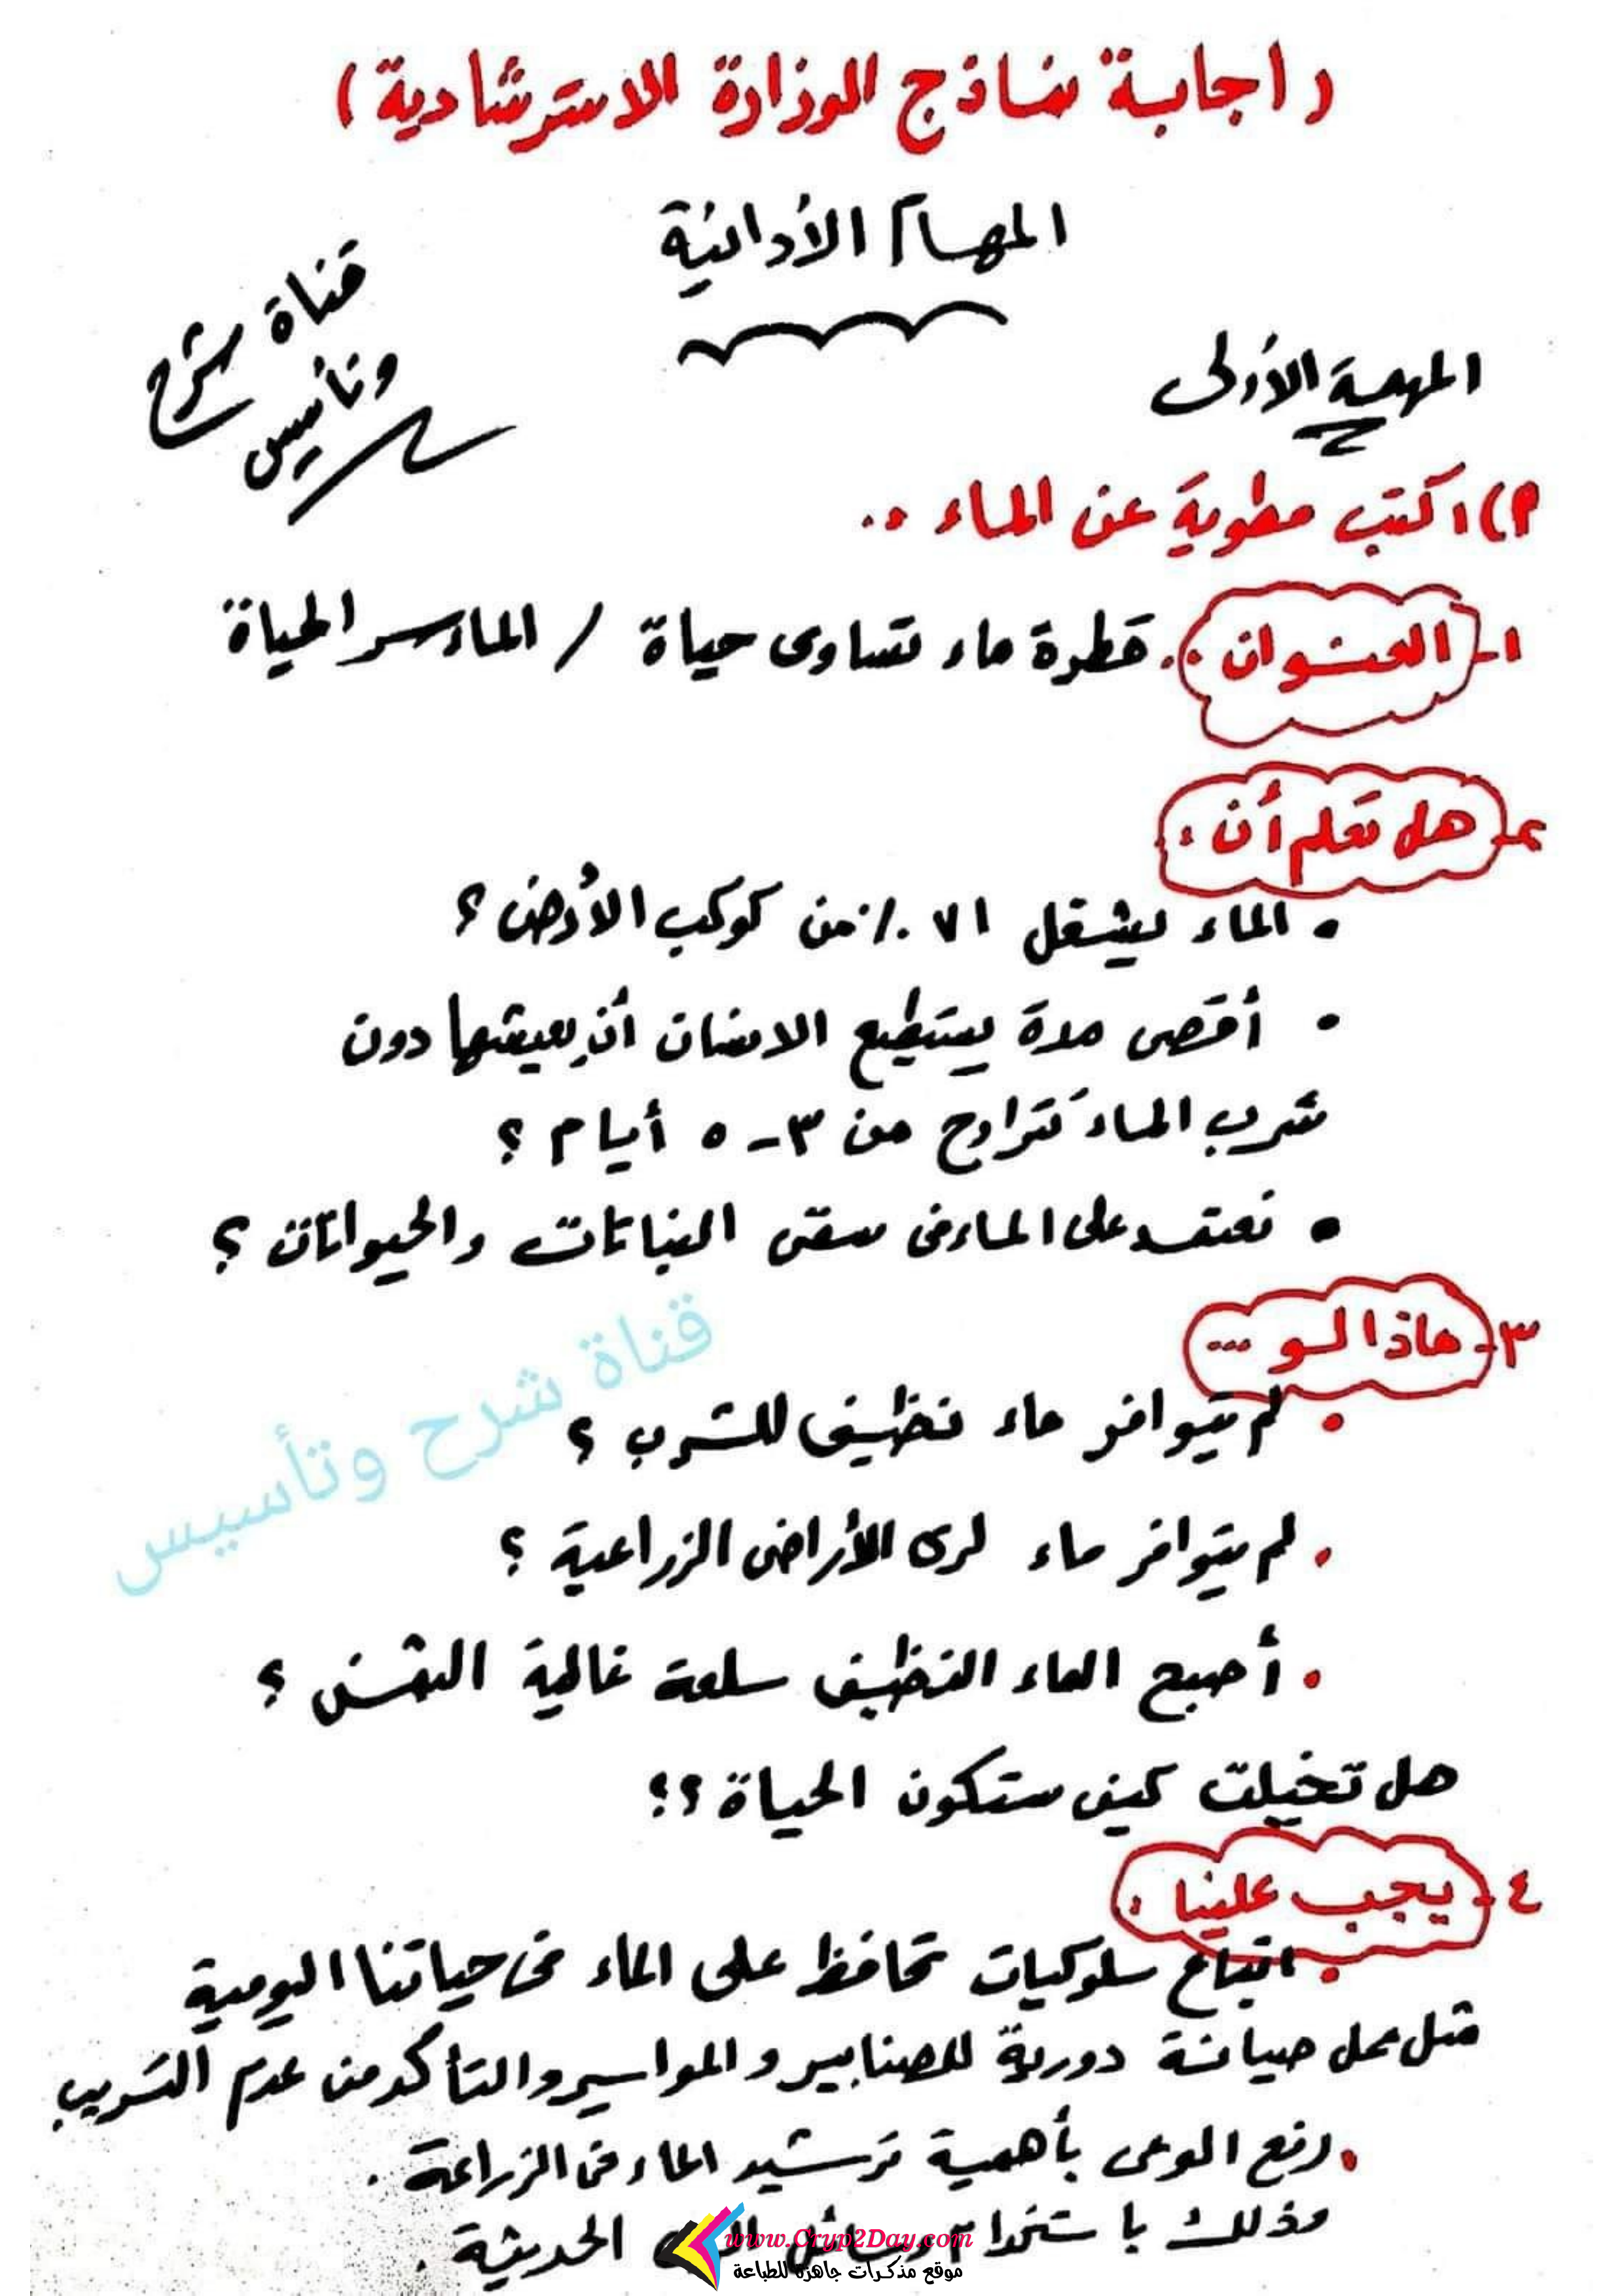 (اجابة نماذج الوزارة الاسترشادية)
المهام الأدائية
قناة شرح
وتأسيس
المهمة الأولى
م) اكتب مطوية عن الماء ..
١- العنوان : قطرة ماء تساوى حياة / الماء سر الحياة
٢- هل تعلم أن :
• الماء يشغل ٧١ ٪ من كوكب الأرض ؟
• أقصى مدة يستطيع الانسان أن يعيشها دون
شرب الماء تتراوح من ٣ - ٥ أيام ؟
• نعتمد على الماء فى سقى النباتات والحيوانات ؟
قناة شرح وتأسيس
٣- ماذا لو ...
• لم يتوافر ماء نظيف للشرب ؟
• لم يتوافر ماء لرى الأراضى الزراعية ؟
• أصبح الماء النظيف سلعة غالية الثمن ؟
هل تخيلت كيف ستكون الحياة ؟؟
٤- يجب علينا :
• اتباع سلوكيات تحافظ على الماء فى حياتنا اليومية
مثل عمل صيانة دورية للصنابير والمواسير والتأكد من عدم التسريب
• رفع الوعى بأهمية ترشيد الماء فى الزراعة .
وذلك باستخدام وسائل الرى الحديثة .
www.Cryp2Day.com
موقع مذكرات جاهزة للطباعة